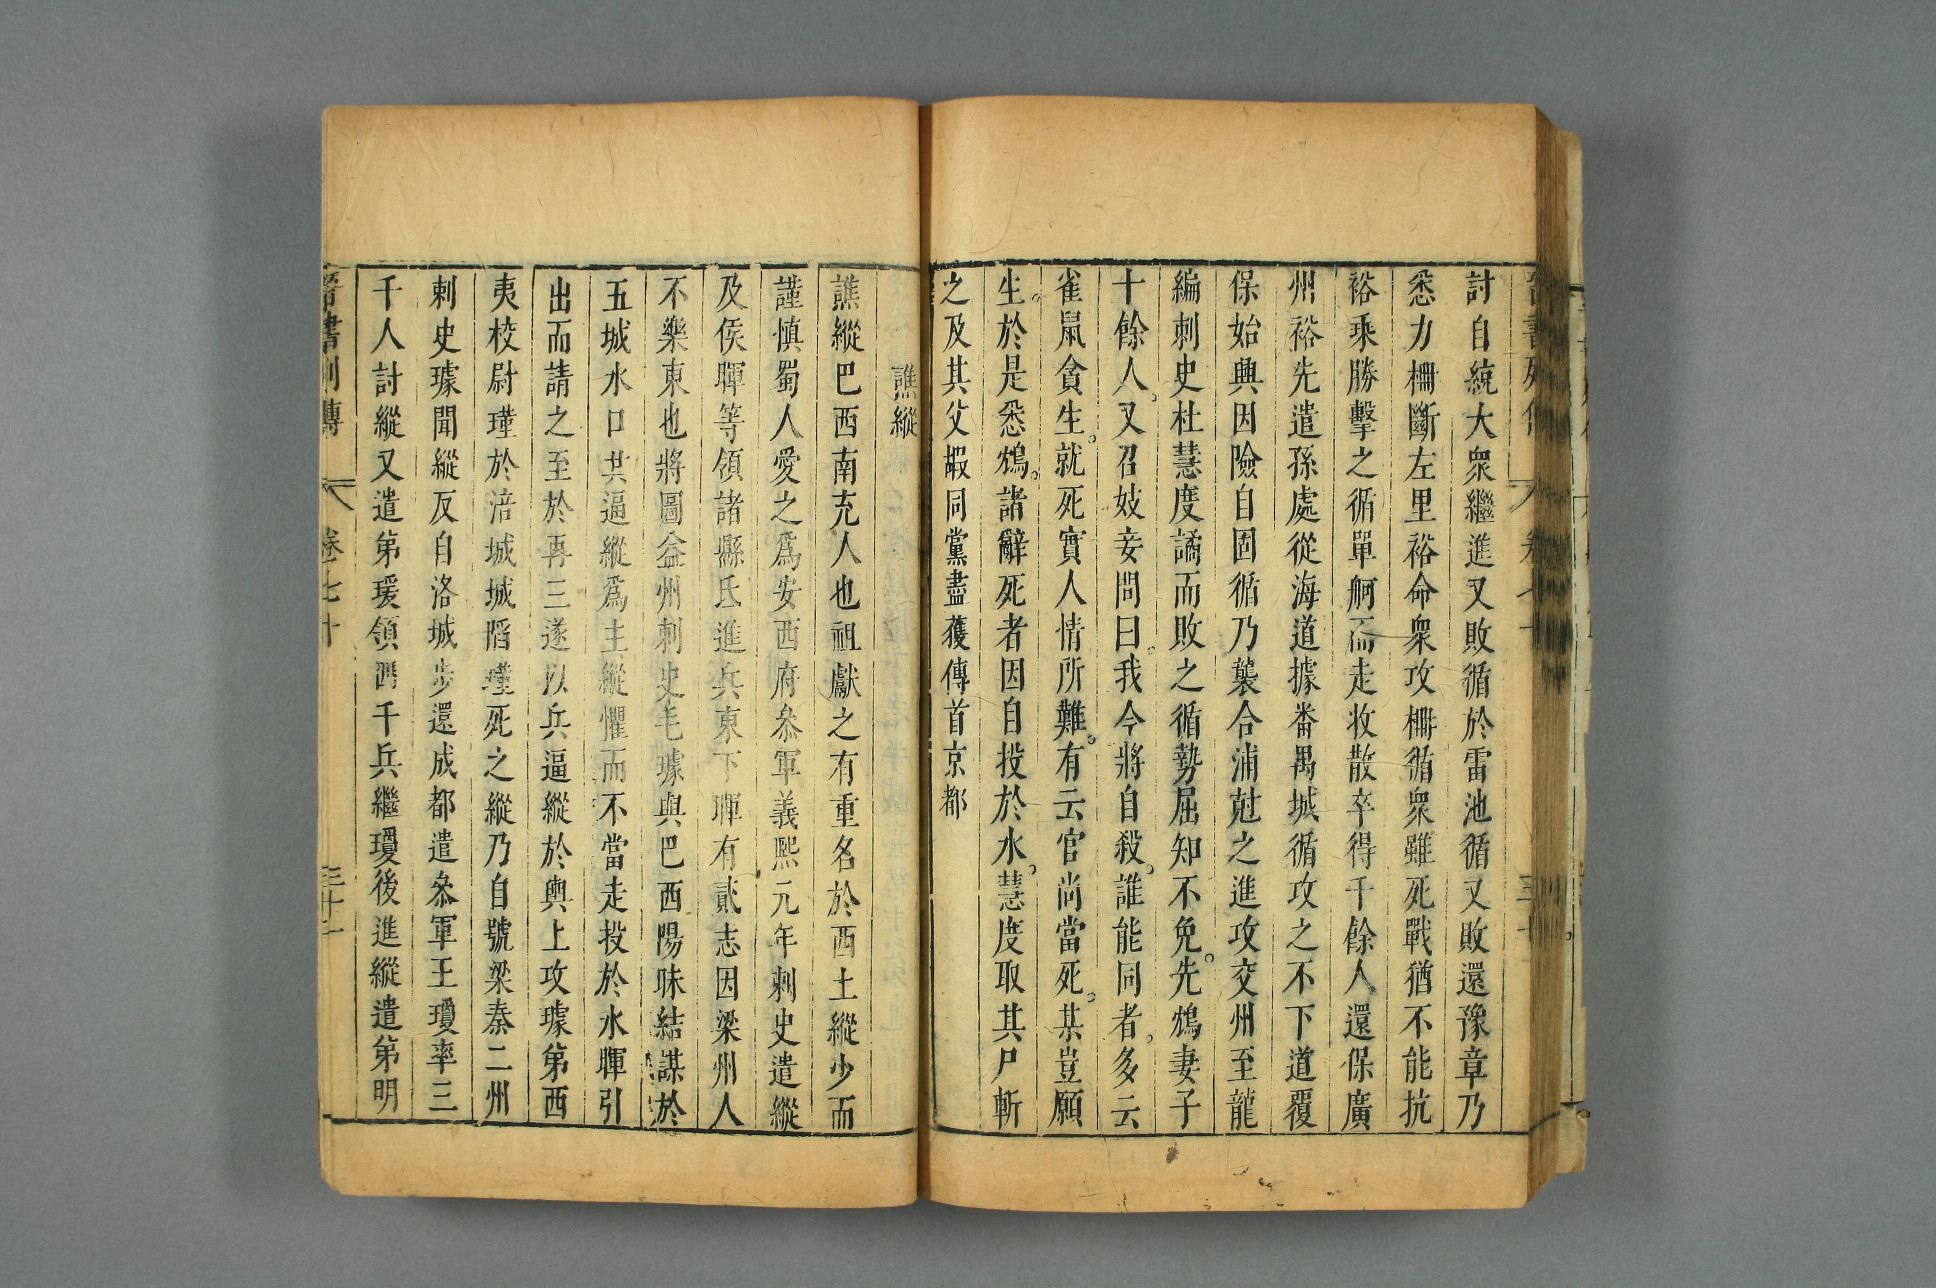 討自統大衆繼進又敗循於雷池循又敗還豫章乃
悉力柵斷左里裕命衆攻柵循衆雖死戰猶不能抗
裕乘勝擊之循單舸而走收散卒得千餘人還保廣
州裕先遣孫處從海道據番禺城循攻之不下道覆
保始興因險自固循乃襲合浦尅之進攻交州至龍
編刺史杜慧度譎而敗之循勢屈知不免。先鴆妻子
十餘人。又召妓妾問曰。我今將自殺。誰能同者。多云
雀鼠貪生。就死實人情所難。有云官尚當死。某豈願
生。於是悉鴆。諸辭死者因自投於水。慧度取其尸斬
之及其父嘏同黨盡獲傳首京都
譙縱
譙縱巴西南充人也祖獻之有重名於西土縱少而
謹慎蜀人愛之爲安西府叅軍義熙元年刺史遣縱
及侯暉等領諸縣氐進兵東下暉有貳志因梁州人
不樂東也將圖益州刺史毛璩與巴西陽昧結謀於
五城水口共逼縱爲主縱懼而不當走投於水暉引
出而請之至於再三遂以兵逼縱於輿上攻璩弟西
夷校尉瑾於涪城城陷瑾死之縱乃自號梁秦二州
刺史璩聞縱反自洛城步還成都遣叅軍王瓊率三
千人討縱又遣弟瑗領四千兵繼瓊後進縱遣弟明
晉書列傳 卷七十 三十一